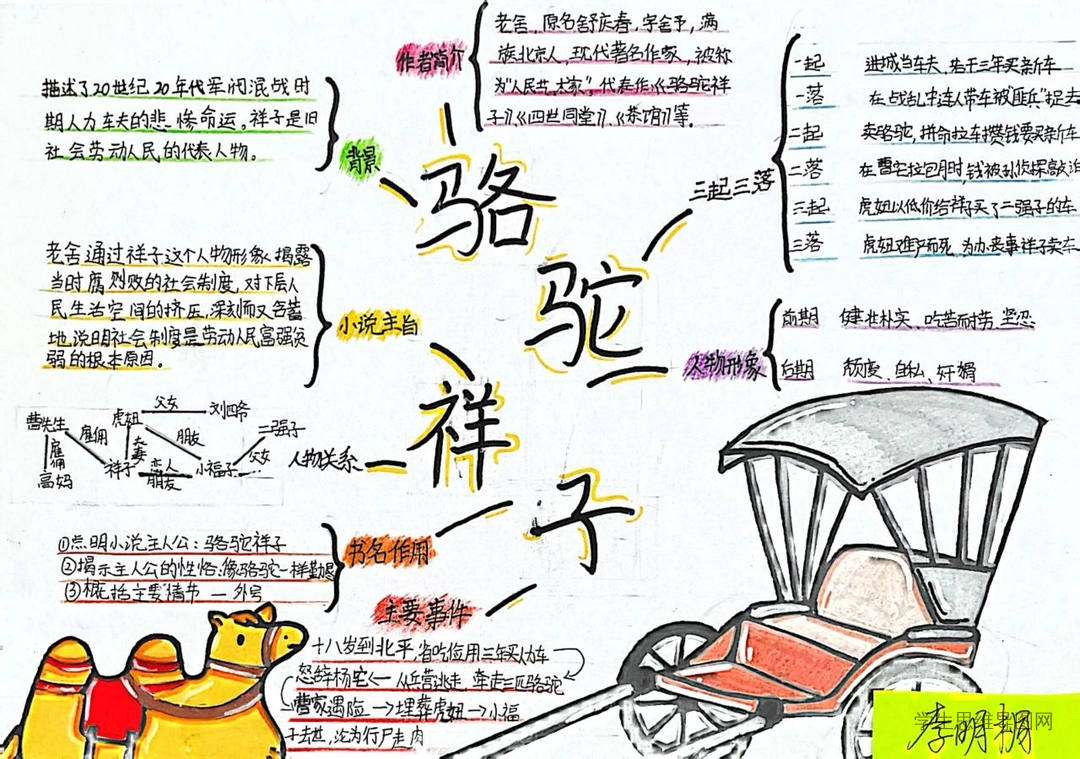 骆
驼
祥
子
作者简介
老舍,原名舒庆春,字舍予,满
族北京人,现代著名作家,被称
为"人民艺术家",代表作《骆驼祥
子》《四世同堂》、《茶馆》等。
背景
描述了20世纪20年代军阀混战时
期人力车夫的悲惨命运。祥子是旧
社会劳动人民的代表人物。
三起三落
一起 进城当车夫,苦干三年买新车
一落 在战乱中连人带车被"匪兵"捉去
二起 卖骆驼,拼命拉车攒钱要买新车
二落 在曹宅拉包月时,钱被孙侦探敲诈
三起 虎妞以低价给祥子买了二强子的车
三落 虎妞难产而死,为办丧事祥子卖车
小说主旨
老舍通过祥子这个人物形象,揭露
当时腐烈败的社会制度,对下层人
民生活空间的挤压,深刻而又含蓄
地说明社会制度是劳动人民富强贫
弱的根本原因。
人物形象
前期 健壮朴实、吃苦耐劳、坚忍
后期 颓废、自私、奸猾
人物关系
曹先生 雇佣 虎妞 父女 刘四爷
雇佣 夫妻 朋友 二强子
高妈 祥子 恋人 朋友 小福子 父女
书名作用
①点明小说主人公:骆驼祥子
②揭示主人公的性格:像骆驼一样勤恳
③概括主要情节 — 外号
主要事件
十八岁到北平,省吃俭用三年买人力车
怒辞杨宅 ← 从兵营逃走,牵走三匹骆驼
曹家遇险 → 埋葬虎妞 → 小福
子去世,沦为行尸走肉